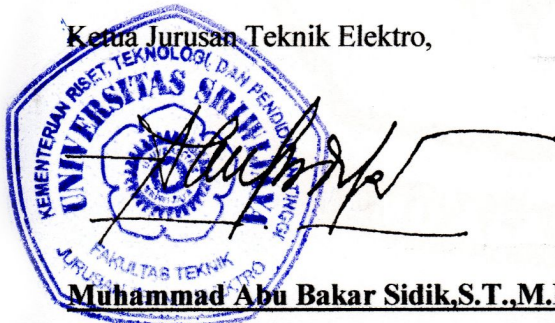 Ketua Jurusan Teknik Elektro,
KEMENTERIAN RISET, TEKNOLOGI, DAN PENDIDIKAN TINGGI
UNIVERSITAS SRIWIJAYA
FAKULTAS TEKNIK
JURUSAN TEKNIK ELEKTRO
Muhammad Abu Bakar Sidik,S.T.,M.